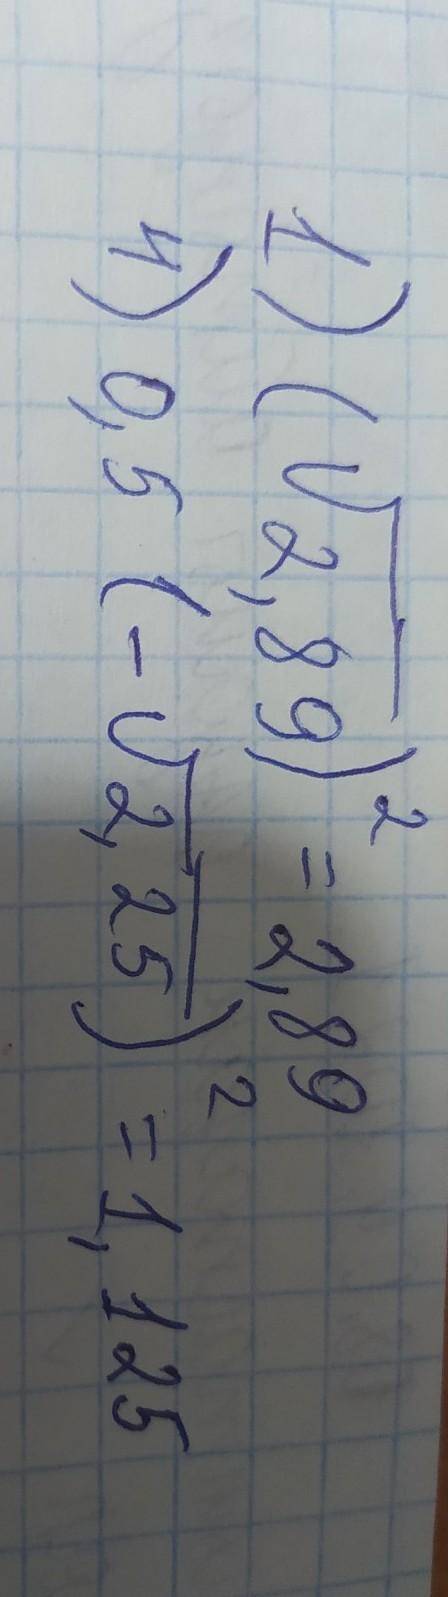 1) (√2,89)² = 2,89
4) 0,5 (-√2,25)² = 1,125